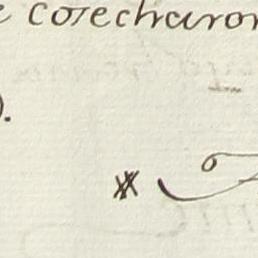 e cosecharon
).